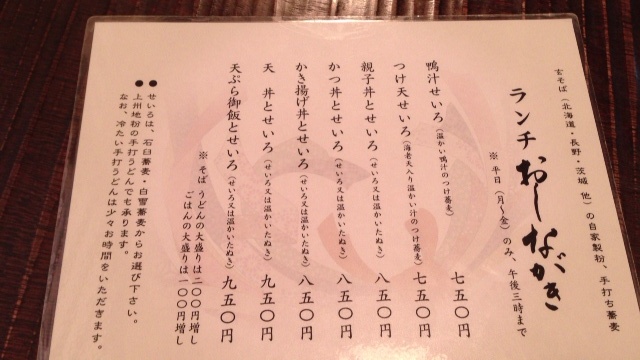 玄そば（北海道・長野・茨城 他）の自家製粉、手打ち蕎麦
ランチ おしながき
※ 平日（月〜金）のみ、午後三時まで
鴨汁せいろ（温かい鴨汁のつけ蕎麦） 七五〇円
つけ天せいろ（海老天入り温かい汁のつけ蕎麦） 七五〇円
親子丼とせいろ（せいろ又は温かいたぬき） 八五〇円
かつ丼とせいろ（せいろ又は温かいたぬき） 八五〇円
かき揚げ丼とせいろ（せいろ又は温かいたぬき） 八五〇円
天 丼とせいろ（せいろ又は温かいたぬき） 九五〇円
天ぷら御飯とせいろ（せいろ又は温かいたぬき） 九五〇円
※ そば うどんの大盛りは二〇〇円増し
ごはんの大盛りは一〇〇円増し
● せいろは、石臼蕎麦・白雪蕎麦からお選び下さい。
● 上州地粉の手打うどんでも承ります。
なお、冷たい手打うどんは少々お時間をいただきます。